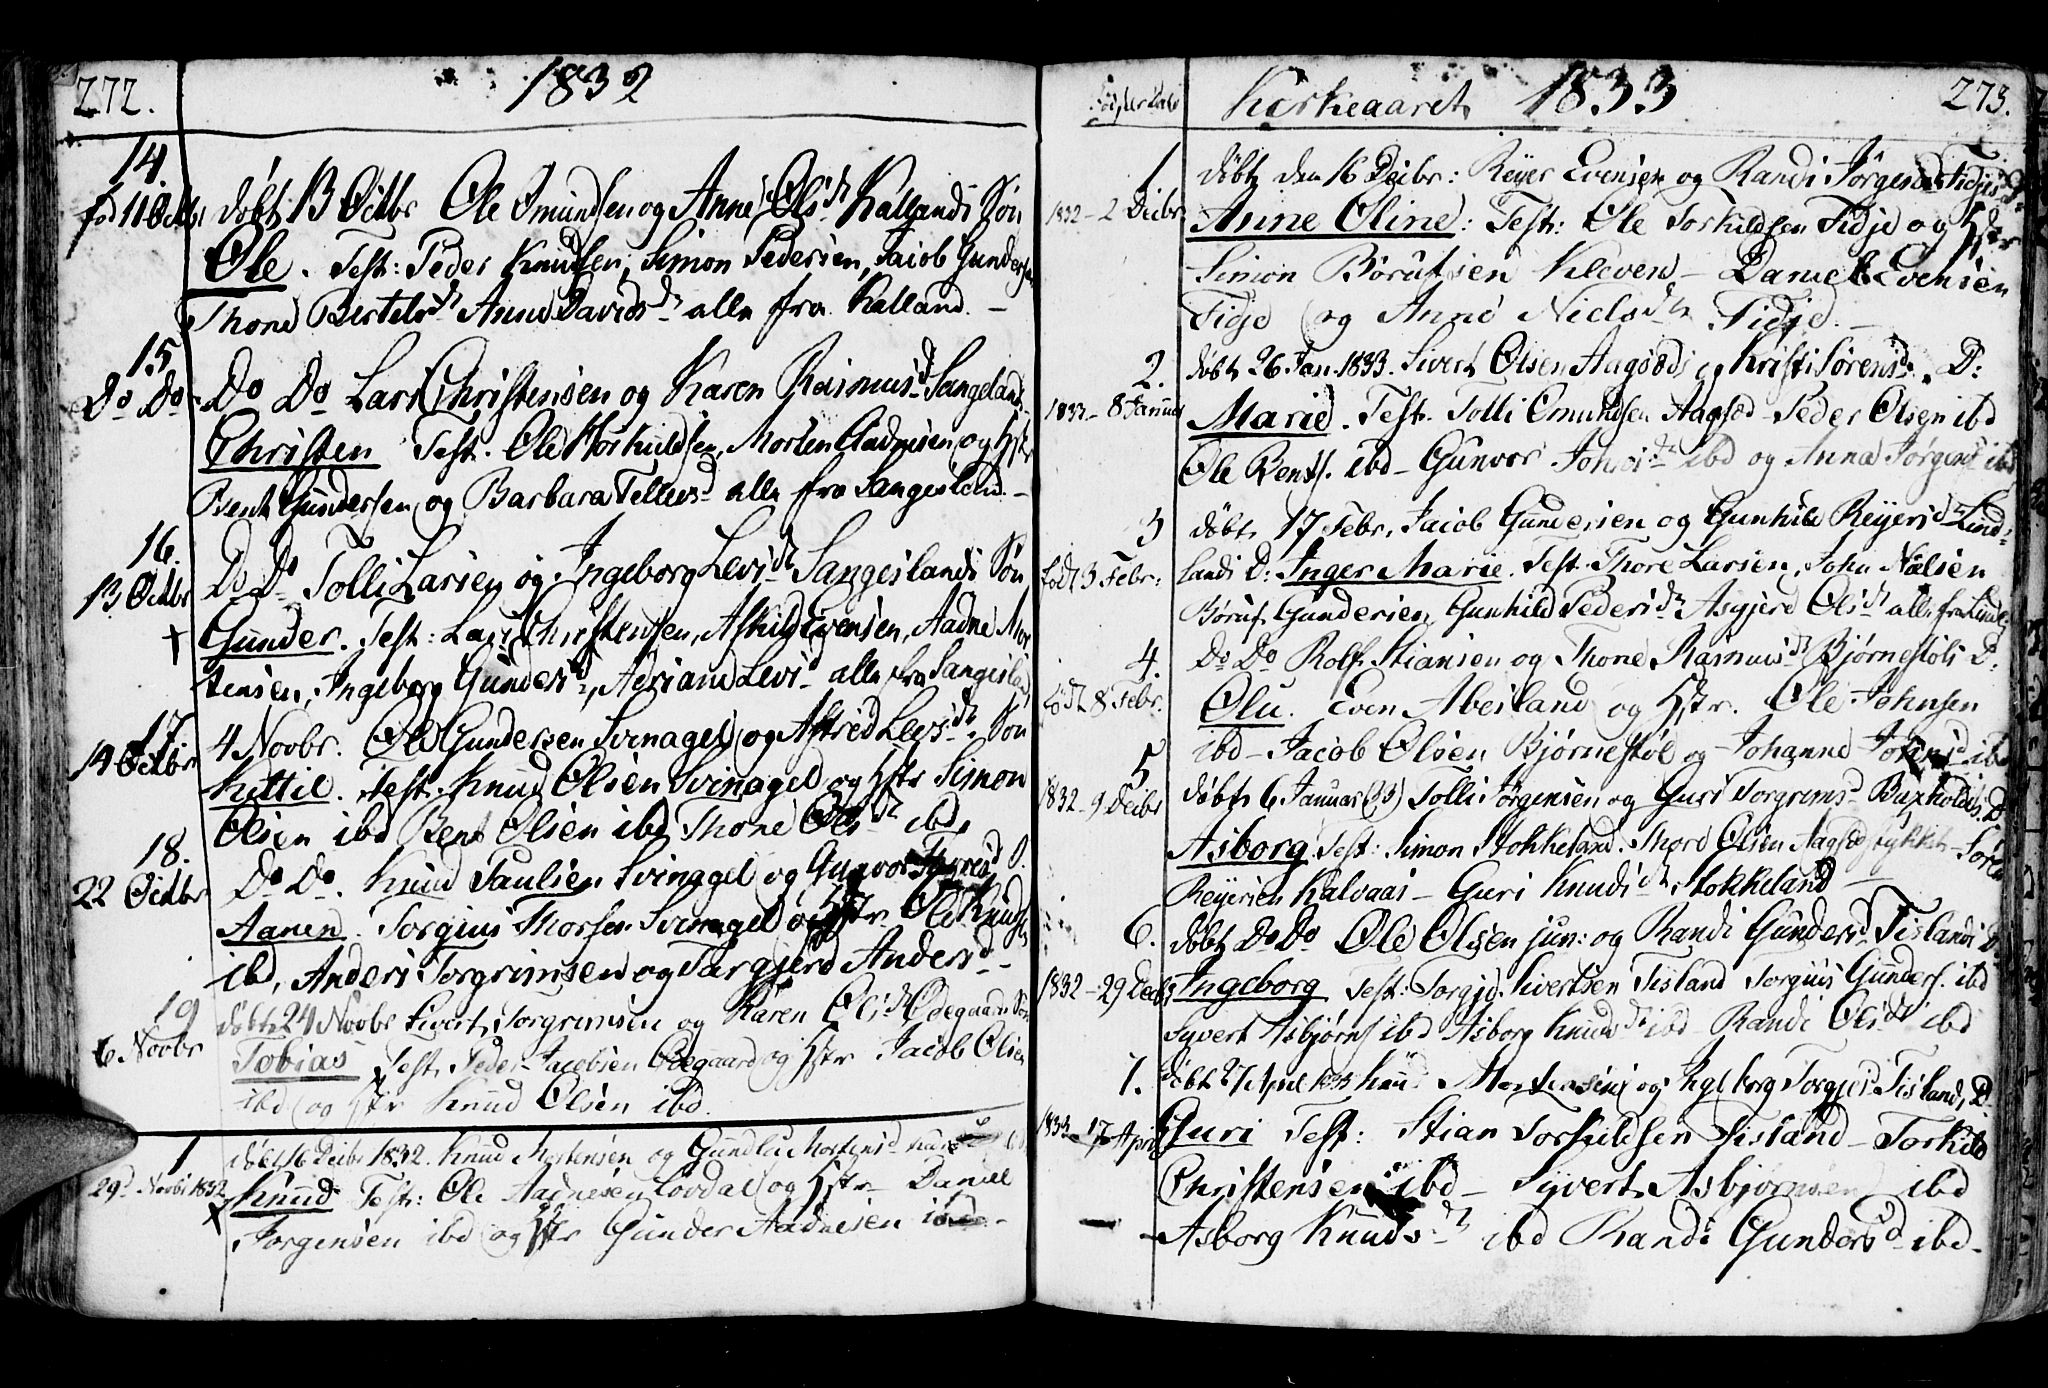 272.
1832
14
fød 11 Octbr døbt 13 Octbr Ole Omundsen og Anne Ols dtr Kallands Søn
Ole. Test: Peder Knudsen, Simon Pedersen, Jacob Gundersen
Thone Bertels dtr Anne Davids dtr alle fra Kalland. -
15
Do Do Do Do Lars Christensen og Karen Rasmus d. Sangelands
Christen Test. Ole Torkildsen, Morten Aadnesen og Hstr
Bent Gundersen og Barbara Tellevs d alle fra Sangesland. -
16.
13 Octbr Do Do Tolli Larsen og Ingeborg Levis dtr Sangeslands Søn
† Gunder. Test: Lars Christensen, Askild Evensen, Aadne Mor
tensen, Ingeborg Gunders d, Adriane Levis d alle fra Sangesland
17.
14 Octbr 4 Novbr. Ole Gundersen Svinagel og Astred Levis dtr Søn
Kittil. Test. Knud Olsen Svinagel og Hstr Simon
Olsen ibd Bent Olsen ibd Thone Ols dtr ibd.
18.
22 Octbr Do Do. Knud Paulsen Svinagel og Gunvor d S.
Aanen. Torgius Thorsen Svinagel og Hstr Ole Knuds
ibd, Anders Torgrimsen og Targjerd Anders d -
19
6 Novbr døbt 24 Novbr Sivert Torgrimsen og Karen Ols dtr Ødegaards Søn
Tobias Test. Peder Jacobsen Ødegaard og Hstr Jacob Olsen
ibd og Hstr Knud Olsen ibd.
1 døbt 16 Decbr 1832. Knud Mortensen og Gundlau Mortens d
29d Novbr 1832 Knud Test: Ole Aadnesen Løvdal og Hstr Daniel
Jørgensen ibd og Hstr Gunder Aadnesen ibd -
Kirkeaaret 1833
273.
1 døbt den 16 Decbr: Reyer Evensen og Randi Jørgensd Fidje D.
1832 - 2 Decbr Anne Oline: Test: Ole Torkildsen Fidje og Hstr
Simon Børufsen Kleven - Daniel Evensen
Fidje og Anne Niels dtr Fidje. -
2. døbt 26 Jan. 1833. Sivert Olsen Aagsøds og Kristi Sørens d. D:
1833 - 8 Januar Marie. Test. Tolli Omundsen Aagsød - Peder Olsen ibd
Ole Bents. ibd - Gunvor dtr ibd og Anna Jørgens ibd
3 døbt 17 Febr. Jacob Gundersen og Gunhild Reyers d Lind-
født 3 Febr: lands D: Inger Marie. Test. Thore Larsen, John Nielsen
Børuf Gundersen, Gunhild Peders dtr Asgjerd Ols dtr alle fra Lindl.
4. Do Do Rolf Stiansen og Thone Rasmus dtr Bjørnestøls D.
født 8 Febr. Olu. Even Abesland og Hstr. Ole Johnsen
ibd - Jacob Olsen Bjørnestøl og Johanne d ibd
5
1832 - 9 Decbr døbt 6 Januar (33) Tolli Jørgensen og Guri Torgrims d. D.
Asborg. Test: Simon Stokkeland. Thore Olsen Aagsødstykket - Søren
Reyersen Kalvaas - Guri Knuds dtr Stokkeland
6. døbt Do Do Ole Olsen jun: og Randi Gunders d. Fislands D
1832 - 29 Decbr Ingeborg Test: Torgjd. Sivertsen Fisland Torgius Gunders. ibd
Syvert Asbjørns ibd Asborg Knuds dtr ibd - Randi Ols dtr ibd
7. døbt 27 April 1833 Knud Mortensen og Ingeborg Torgjers Fislands D.
1833 - 17 April Guri Test: Stian Torkildsen Fisland - Torkild
Christensen ibd - Syvert Asbjørnsen ibd
- Asborg Knuds dtr ibd Randi Gunders d ibd -